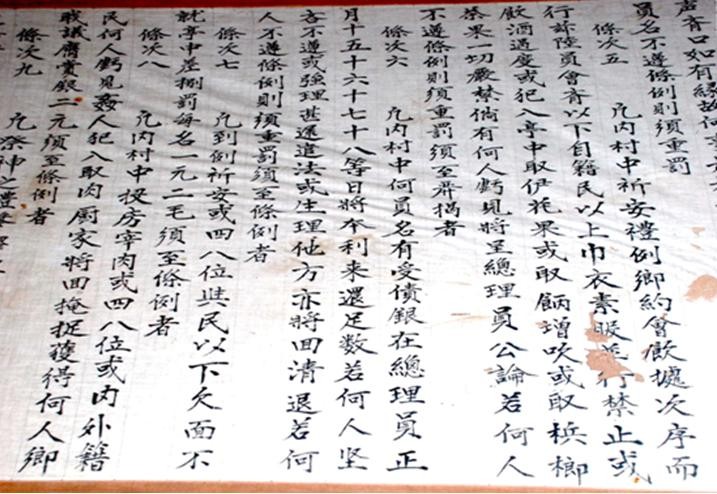 員名不遵條例則須重罰
條次五　凢內村中祈安禮例鄉約會飲據次序而
行許陸員會斉以下自籍民以上巾衣素服並行禁止或
飲酒過度或犯入亭中取伊花果或取餅增吹或取梹榔
茶果一切嚴禁倘有何人虧見將呈總理員公論若何人
不遵條例則須重罰須至券揭者
條次六　凢內村中何員名有受債銀在總理員正
月十五十六十七十八等日將本利来還足数若何人坚
吝不遵或強理甚逐遣法或生理他方亦將回清退若何
人不遵條例則須重罰須至條例者
條次七　凢到例祈安或四八位與民以下欠面不
就亭中差捌罰每名一元二毛須至條例者
條次八　凢內村中投房宰肉或四八位或內外籍
民何人虧見姦人犯入取肉厨家將回掩捉獲得何人鄉
職議膺賞銀二元須至條例者
條次九　凢祭神之禮